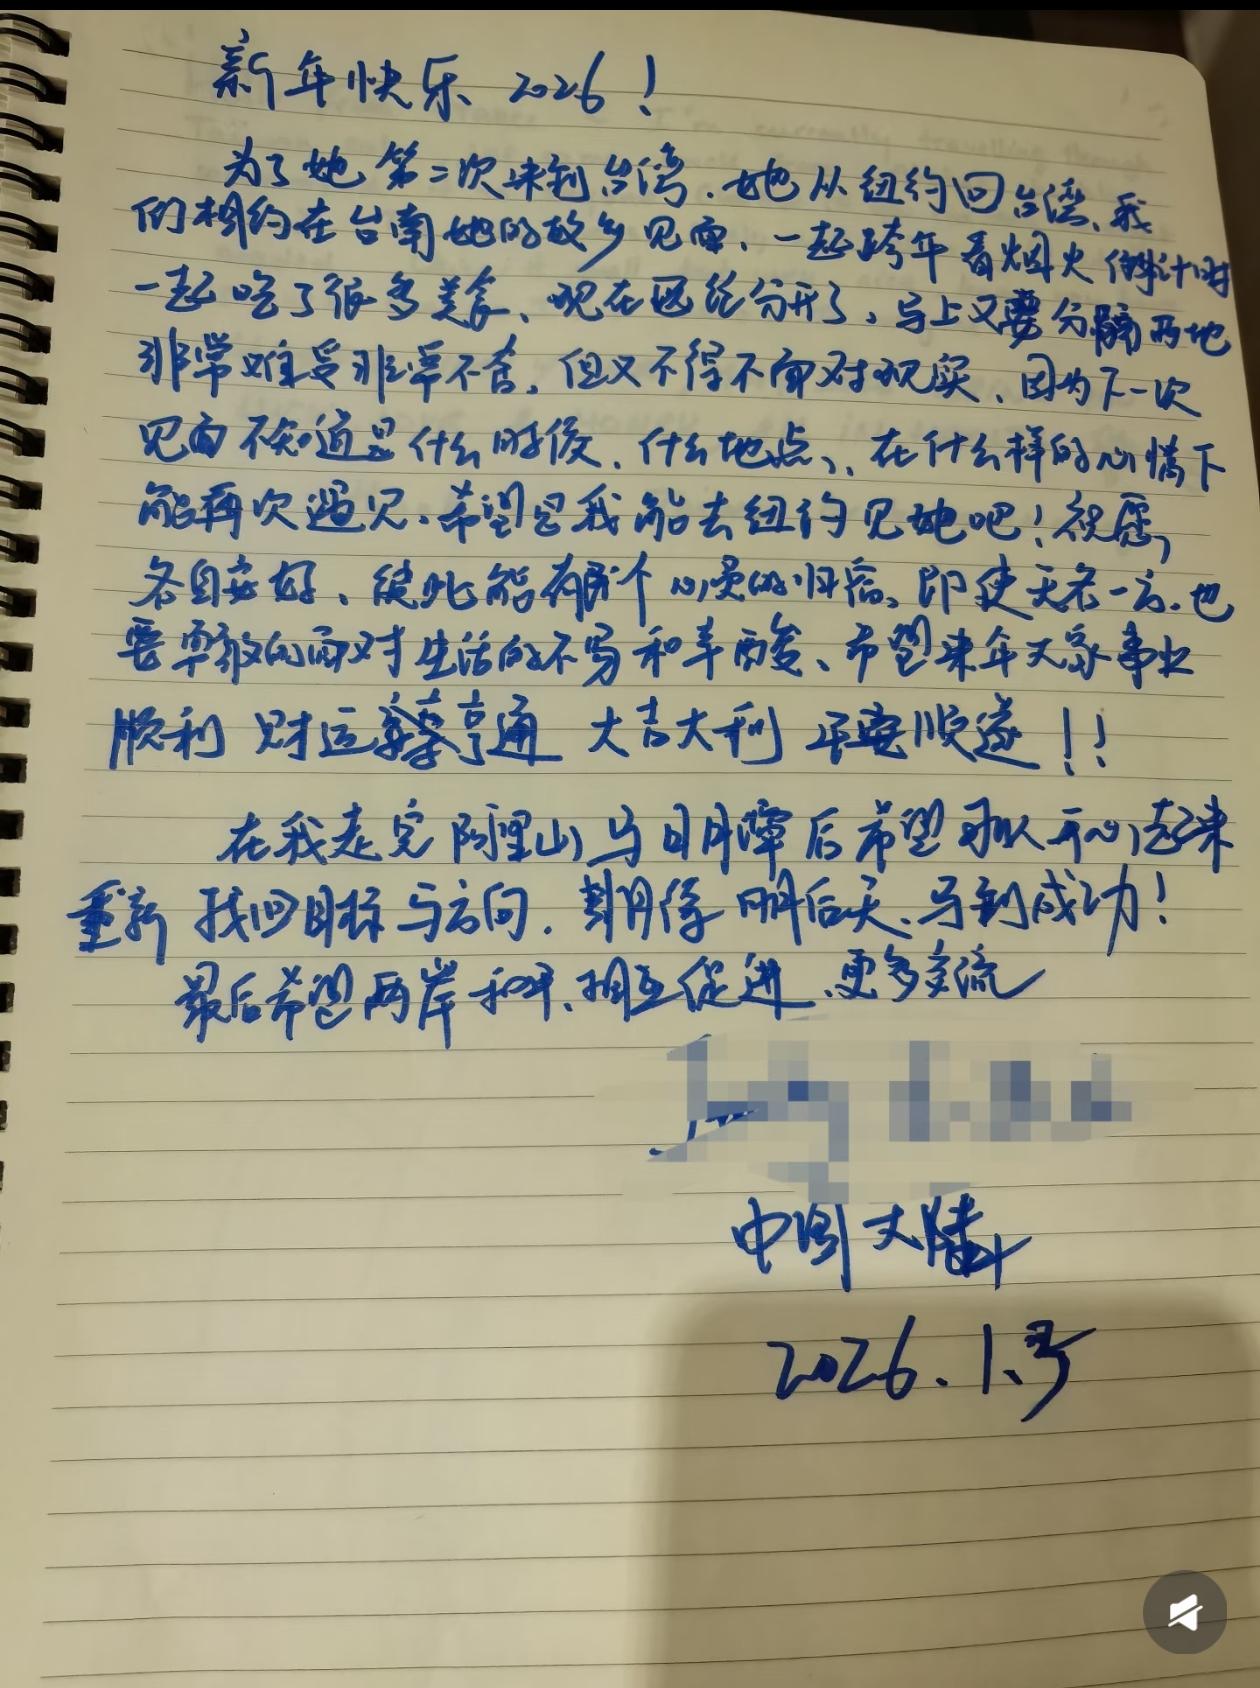 新年快乐 2026！
为了她第二次来到台湾，她从纽约回台湾、我
们相约在台南她的故乡见面、一起跨年看烟火倒计时
一起吃了很多美食、现在已经分开了，马上又要分隔两地
非常难受非常不舍，但又不得不面对现实、因为下一次
见面不知道是什么时候、什么地点、在什么样的心情下
能再次遇见、希望是我能去纽约见她吧！祝愿，
各自安好、能有个心灵的归宿、即使天各一方、也
要勇敢的面对生活的不易和辛酸、希望来年大家事业
顺利 财运亨通 大吉大利 平安顺遂！！
在我走完阿里山与日月潭后希望可以开心起来
重新找回目标与方向，明后天、马到成功！
最后希望两岸和平、相互促进、更多交流
中国大陆
2026.1.号